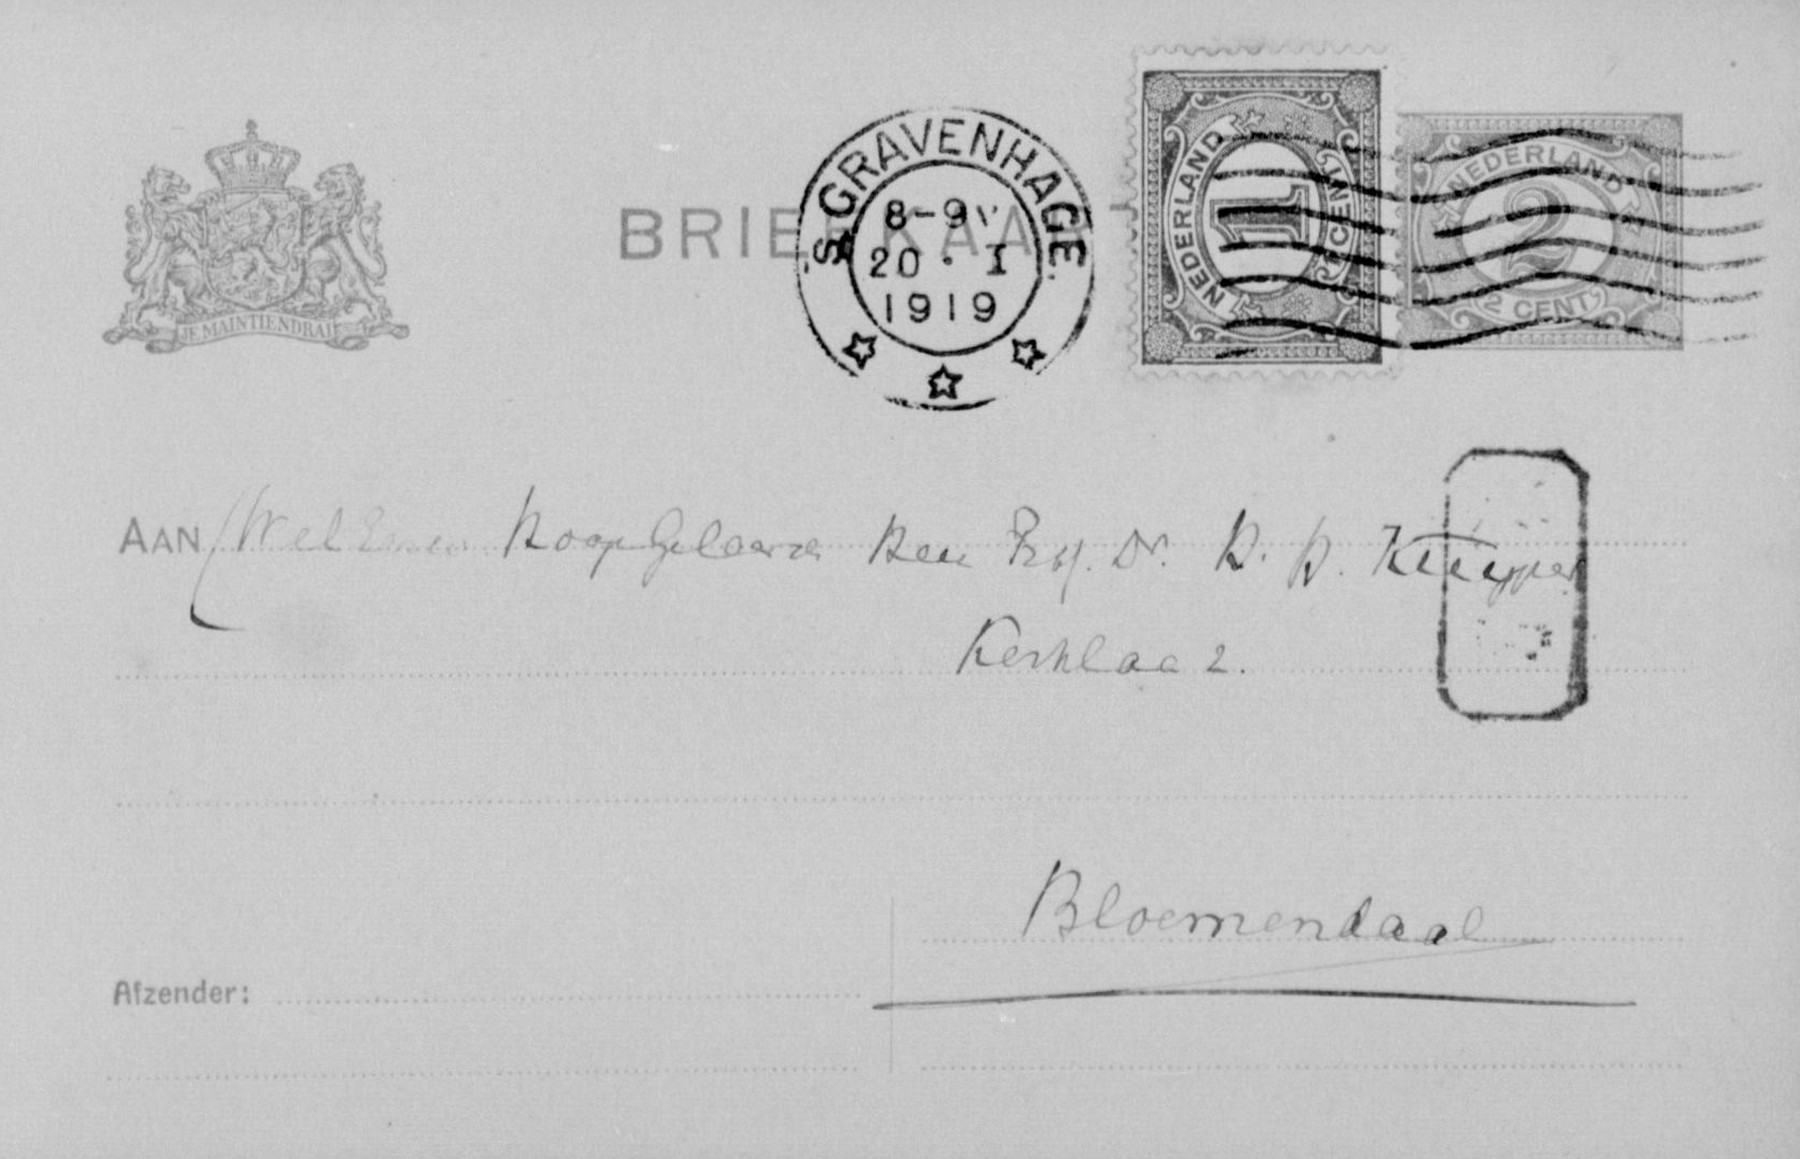 JE MAINTIENDRAI
BRIEFKAART
'S GRAVENHAGE.
8-9V
20 · I
1919
NEDERLAND
1 CENT
NEDERLAND
2
2 CENT
AAN Wel Hoog Gelaarde Heer Prof. Dr. H. H. Kuyper
Kerklaa 2.
Bloemendaal
Afzender: